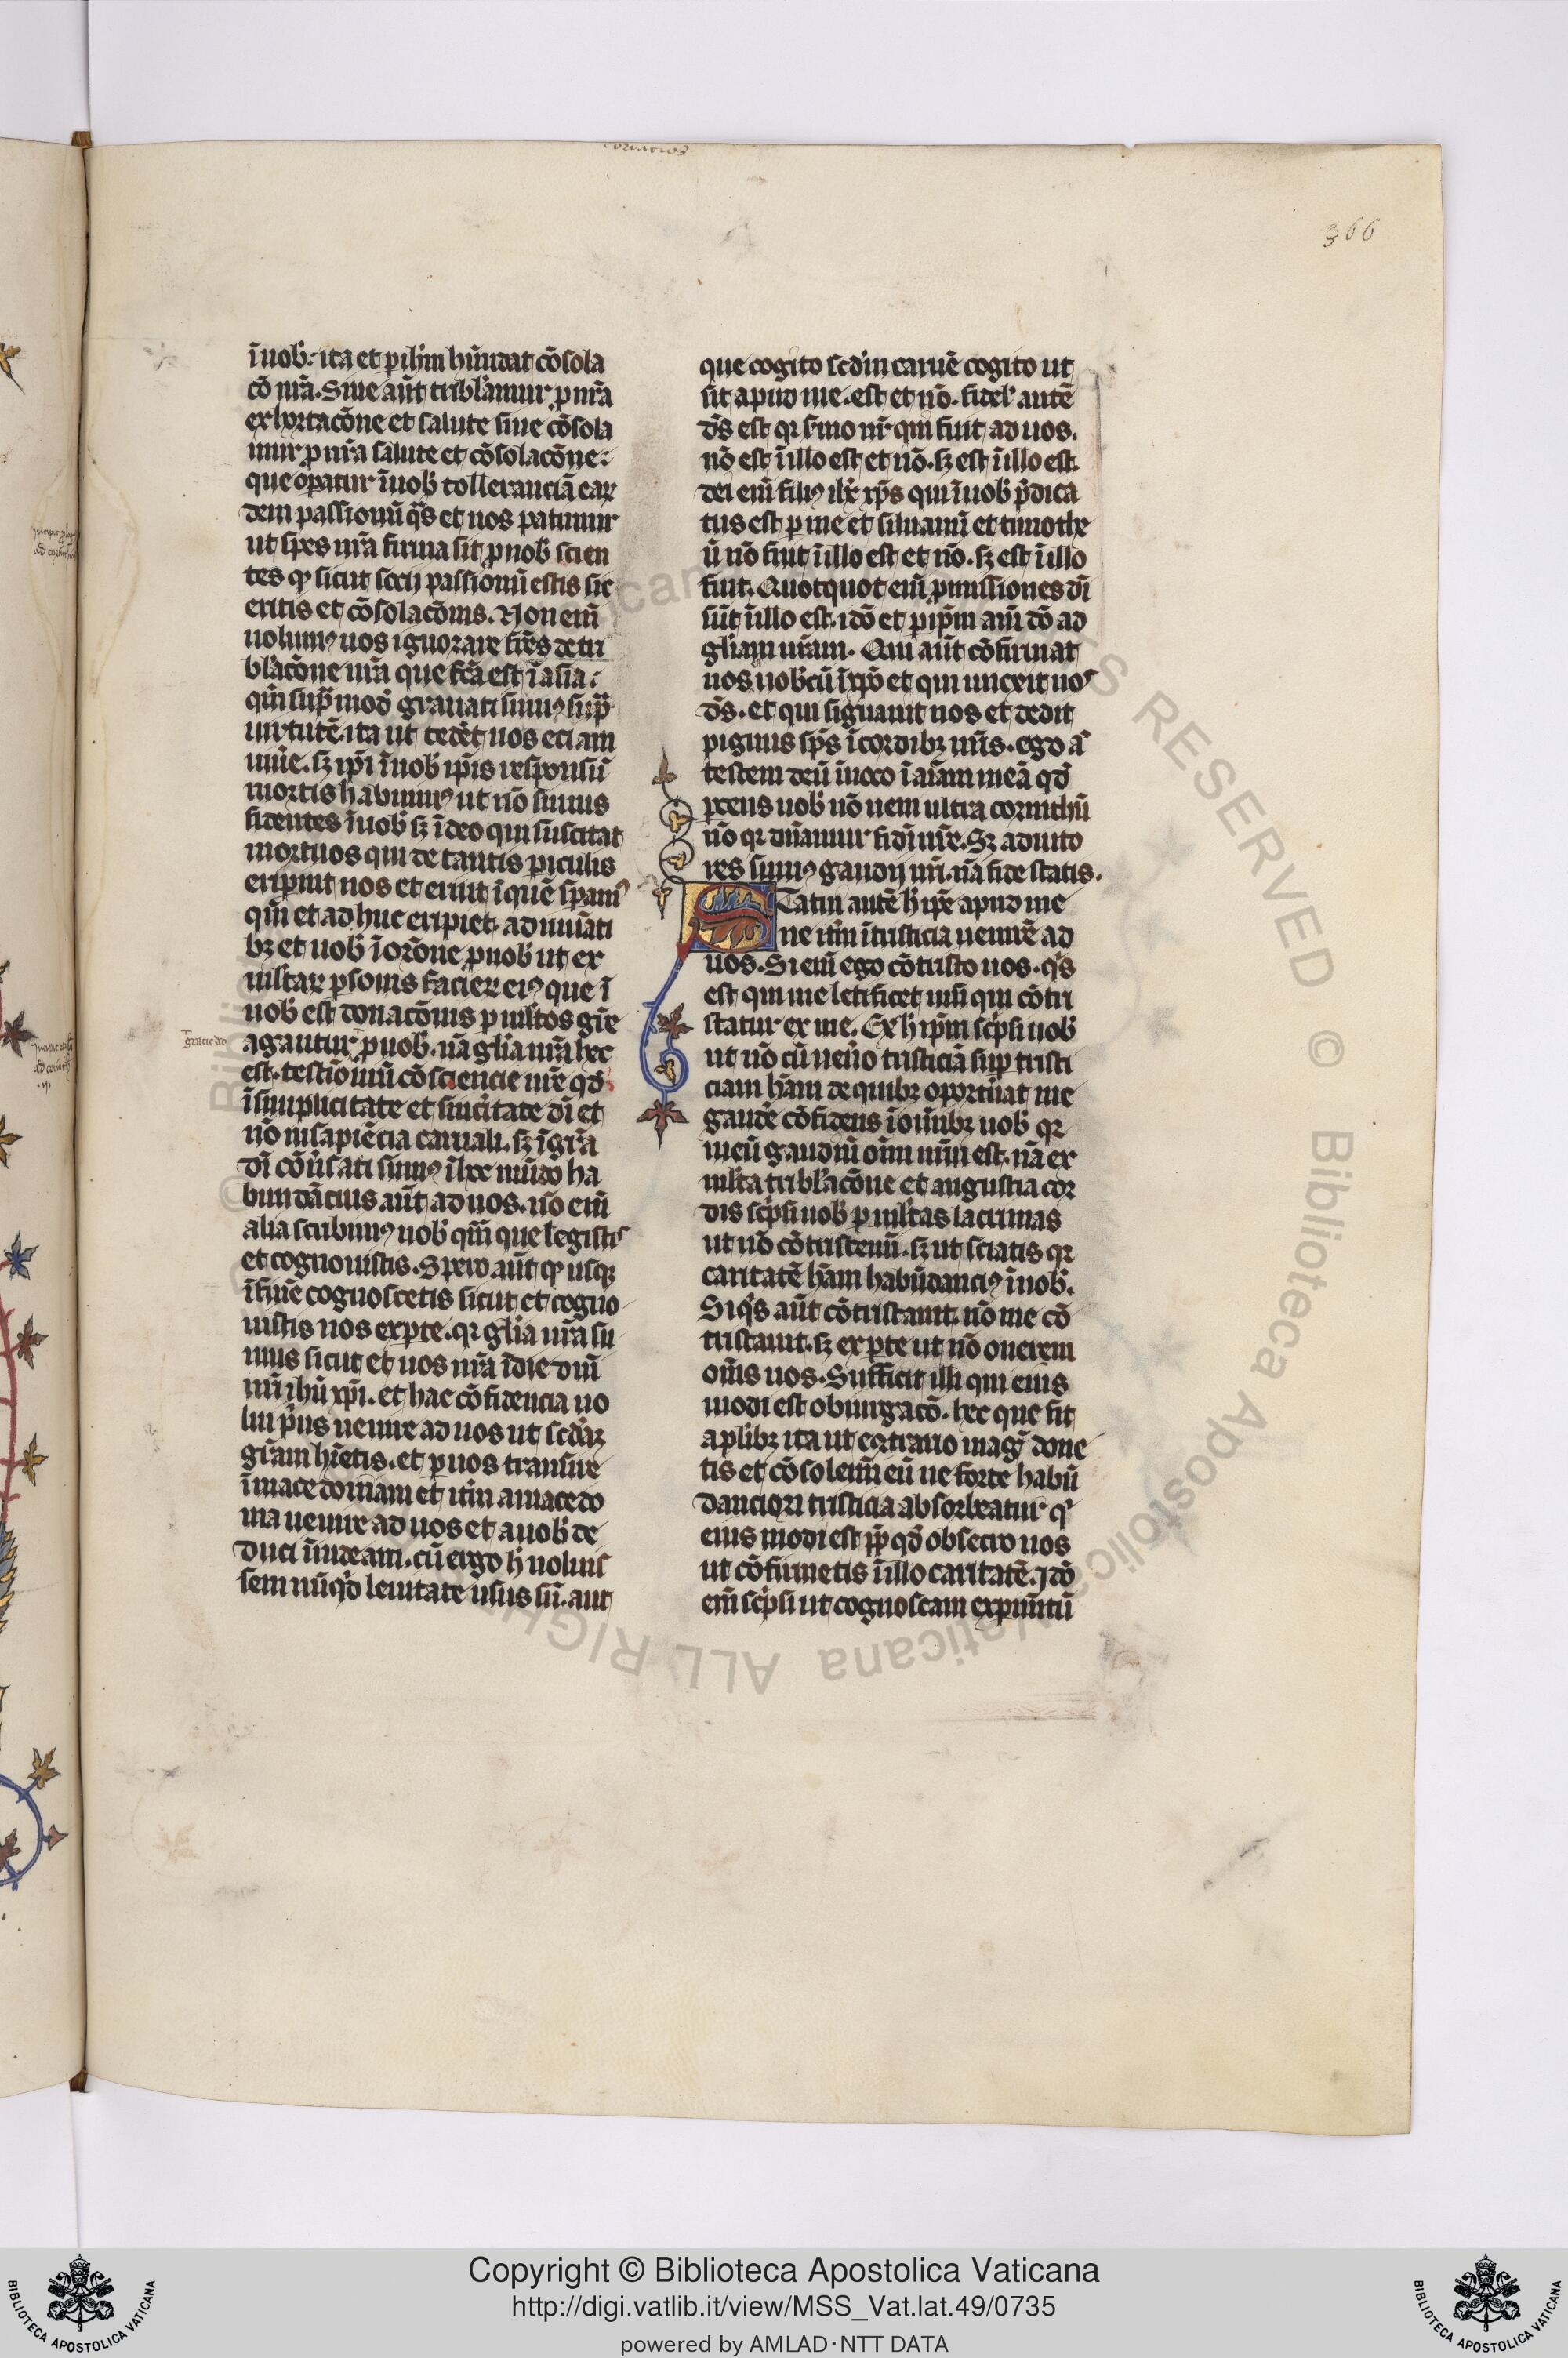 corintios
366
ī uob᷒. ita et ꝑ ih̄m hūndat cōsola
cō nr̄a. Siue aūt tribl̄amur ꝓ nr̄a
exhortacōne et salute siue cōsola
mur ꝓ nr̄a salute et cōsolacōne.
que oꝑatur ī uob᷒ tolleranciā eaꝝ
dem passionū qᷤs et nos patimur
ut spes nr̄a firma sit ꝓ uob᷒ scien
tes ꝙ sicut socij passionū estis sic
eritis et cōsolacōnis. Non em̄
uolumꝰ uos ignorare fr̄es de tri
bl̄acōne nr̄a que fc̄a est ī asia.
qm̄ sup̄ mod̄ grauati sumꝰ sup̄
uirtutē. ita ut tedēt nos eciam
uiūe. sꝫ ip̄i ī nob᷒ ip̄is responsū
mortis habuimꝰ ut nō simus
fidentes ī nob᷒ sꝫ ī deo qui suscitat
mortuos qui de tantis ꝑiculis
eripuit nos et eruit ī quē sꝑamꝰ
qm̄ et ad huc eripiet. adiuuāti
bꝫ et uob᷒ ī orōne ꝓ nob᷒ ut ex
mlt̄aꝝ ꝑsonis facieꝝ eiꝰ que ī
nob᷒ est donacōnis ꝑ ml̄tos gr̄e
agantur ꝓ nob᷒. nā gl̄ia nr̄a hec
est. testioniū cōsciencie nr̄e qd̄
ī simplicitate et sinc̄itate dī et
nō ī sapiēcia carnali. sꝫ ī gr̄a
dī cōūsati sumꝰ ī hoc mūdo ha
bundācius aūt ad uos. nō em̄
alia scribimꝰ uob᷒ qm̄ que legistis
et cognouistis. Spero aūt ꝙ usqꝫ
ī finē cognoscetis sicut et cogno
uistis nos ex ꝑte. qꝛ gl̄ia ur̄a su
mus sicut et uos nr̄a ī die dn̄i
nr̄i ihū xp̄i. et hac cōfidencia uo
lui pⁱus uenire ad uos ut sc̄daꝫ
gr̄am hr̄etis. et ꝑ uos transire
ī macedoniam et itm̄ a macedo
nia uenire ad uos et a uob᷒ de
duci ī iudeam. cū ergo h̄ uoluis
sem nūqⁱd leuitate usus sū. aut
gracie do
que cogito sc̄dm̄ carnē cogito ut
sit apud me. est et nō. fidel᷒ autē
d̄s est qꝛ s̄mo nr̄ qui fuit ad uos.
nō est ī illo est et nō. sꝫ est ī illo est.
dei em̄ filiꝰ ih̄c xp̄s qui ī uob᷒ p̄dica
tus est ꝑ me et siluanū et timothe
ū nō fuit ī illo est et nō. sꝫ est ī illo
fuit. Quotquot em̄ ꝓmissiones dī
sūt ī illo est. idō et ꝑ ip̄m am̄ dō ad
gl̄iam nr̄am. Qui aūt cōfirmat
nos uob᷒cū ī xp̄o et qui unxit nos
d̄s. et qui signauit nos et dedit
pignus sp̄s ī cordibꝫ nr̄is. ego aͬ
testem deū īuoco ī aīam meā qd̄
ꝑcens uob᷒ nō ueni ultra corinthū
nō qꝛ dn̄amur fidī ur̄e. Sꝫ adiuto
res sumꝰ gaudij ur̄i. nā fide statis.
Statui autē h̄ ip̄e apud me
ne itm̄ ī tristicia uenirē ad
uos. Si em̄ ego cōtristo uos. qⁱs
est qui me letificet nisi qui cōtri
statur ex me. Ex h̄ ip̄m scⁱpsi uob᷒
ut nō cū uen̄o tristiciā suꝑ tristi
ciam hām de quibꝫ oportūat me
gaudē cōfidens ī om̄ibꝫ uob᷒ qꝛ
meū gaudiū oīm ur̄m est. nā ex
ml̄ta tribl̄acōne et angustia cor
dis scⁱpsi uob᷒ ꝑ ml̄tas lacrimas
ut nō cōtristenī. sꝫ ut sciatis qꝛ
caritatē hām habūdanciꝰ ī uob᷒.
Si qⁱs aūt cōtristauit. nō me cō
tristauit. sꝫ ex ꝑte ut nō onerem
om̄s uos. Sufficit illi qui eius
modi est obiurgacō. hec que fit
a plibꝫ ita ut eqtrario magꝭ done
tis et cōsolemī eū ne forte habū
danciori tristicia absorbeatur qⁱ
eius modi est ꝓp̄ qd̄ obsecro uos
ut cōfirmetis ī illo caritatē. Idō
em̄ scⁱpsi ut cognoscam exꝑimtū
© Biblioteca Apostolica Vaticana ALL RIGHTS RESERVED
Copyright © Biblioteca Apostolica Vaticana
http://digi.vatlib.it/view/MSS_Vat.lat.49/0735
powered by AMLAD·NTT DATA
BIBLIOTECA APOSTOLICA VATICANA
BIBLIOTECA APOSTOLICA VATICANA